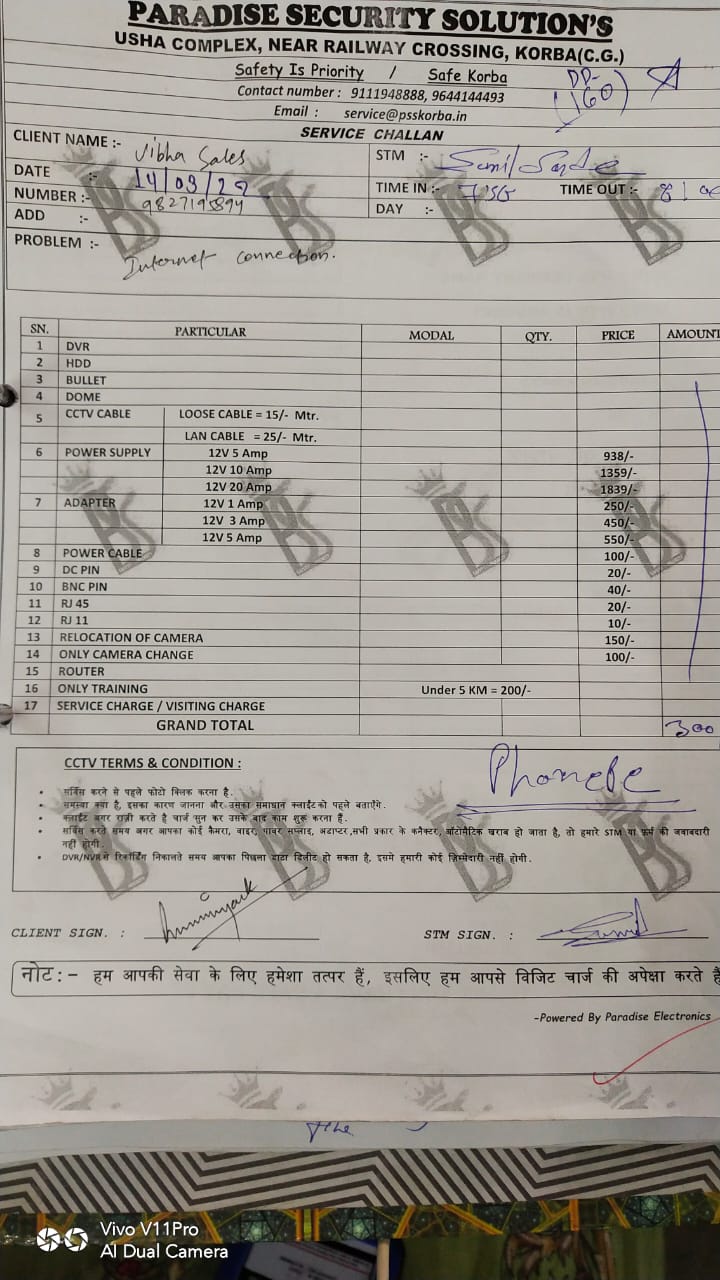 PARADISE SECURITY SOLUTION'S
USHA COMPLEX, NEAR RAILWAY CROSSING, KORBA(C.G.)
Safety Is Priority / Safe Korba
Contact number : 9111948888, 9644144493
Email : service@psskorba.in
DD-
(160)
SERVICE CHALLAN
CLIENT NAME :- Vibha Sales
STM :- Sunil
DATE :- 14/09/22
TIME IN :- 7:50 TIME OUT :- 8
NUMBER :- 9827195894
DAY :-
ADD :-
PROBLEM :- Internet connection.
SN. PARTICULAR MODAL QTY. PRICE AMOUNT
1 DVR
2 HDD
3 BULLET
4 DOME
5 CCTV CABLE LOOSE CABLE = 15/- Mtr.
LAN CABLE = 25/- Mtr.
6 POWER SUPPLY 12V 5 Amp 938/-
12V 10 Amp 1359/-
12V 20 Amp 1839/-
7 ADAPTER 12V 1 Amp 250/-
12V 3 Amp 450/-
12V 5 Amp 550/-
8 POWER CABLE 100/-
9 DC PIN 20/-
10 BNC PIN 40/-
11 RJ 45 20/-
12 RJ 11 10/-
13 RELOCATION OF CAMERA 150/-
14 ONLY CAMERA CHANGE 100/-
15 ROUTER
16 ONLY TRAINING Under 5 KM = 200/-
17 SERVICE CHARGE / VISITING CHARGE
GRAND TOTAL 300
Phonepe
CCTV TERMS & CONDITION :
• सर्विस करने से पहले फोटो क्लिक करना है.
• समस्या क्या है, इसका कारण जानना और उसका समाधान क्लाईंट को पहले बताऐंगे.
• क्लाईंट अगर राज़ी करते है चार्ज सुन कर उसके बाद काम शुरू करना है.
• सर्विस करते समय अगर आपका कोई कैमरा, वाइर, पावर सप्लाइ, अटाप्टर,सभी प्रकार के कनैक्टर, ऑटोमैटिक खराब हो जाता है, तो हमारे STM या फ़र्म की जवाबदारी
नहीं होगी.
• DVR/NVR से रिकॉर्डिंग निकालते समय आपका पिछला डाटा डिलीट हो सकता है, इसमे हमारी कोई ज़िम्मेदारी नहीं होगी.
CLIENT SIGN. : STM SIGN. : Sunil
नोट:- हम आपकी सेवा के लिए हमेशा तत्पर हैं, इसलिए हम आपसे विजिट चार्ज की अपेक्षा करते हैं
-Powered By Paradise Electronics
Vivo V11Pro
AI Dual Camera